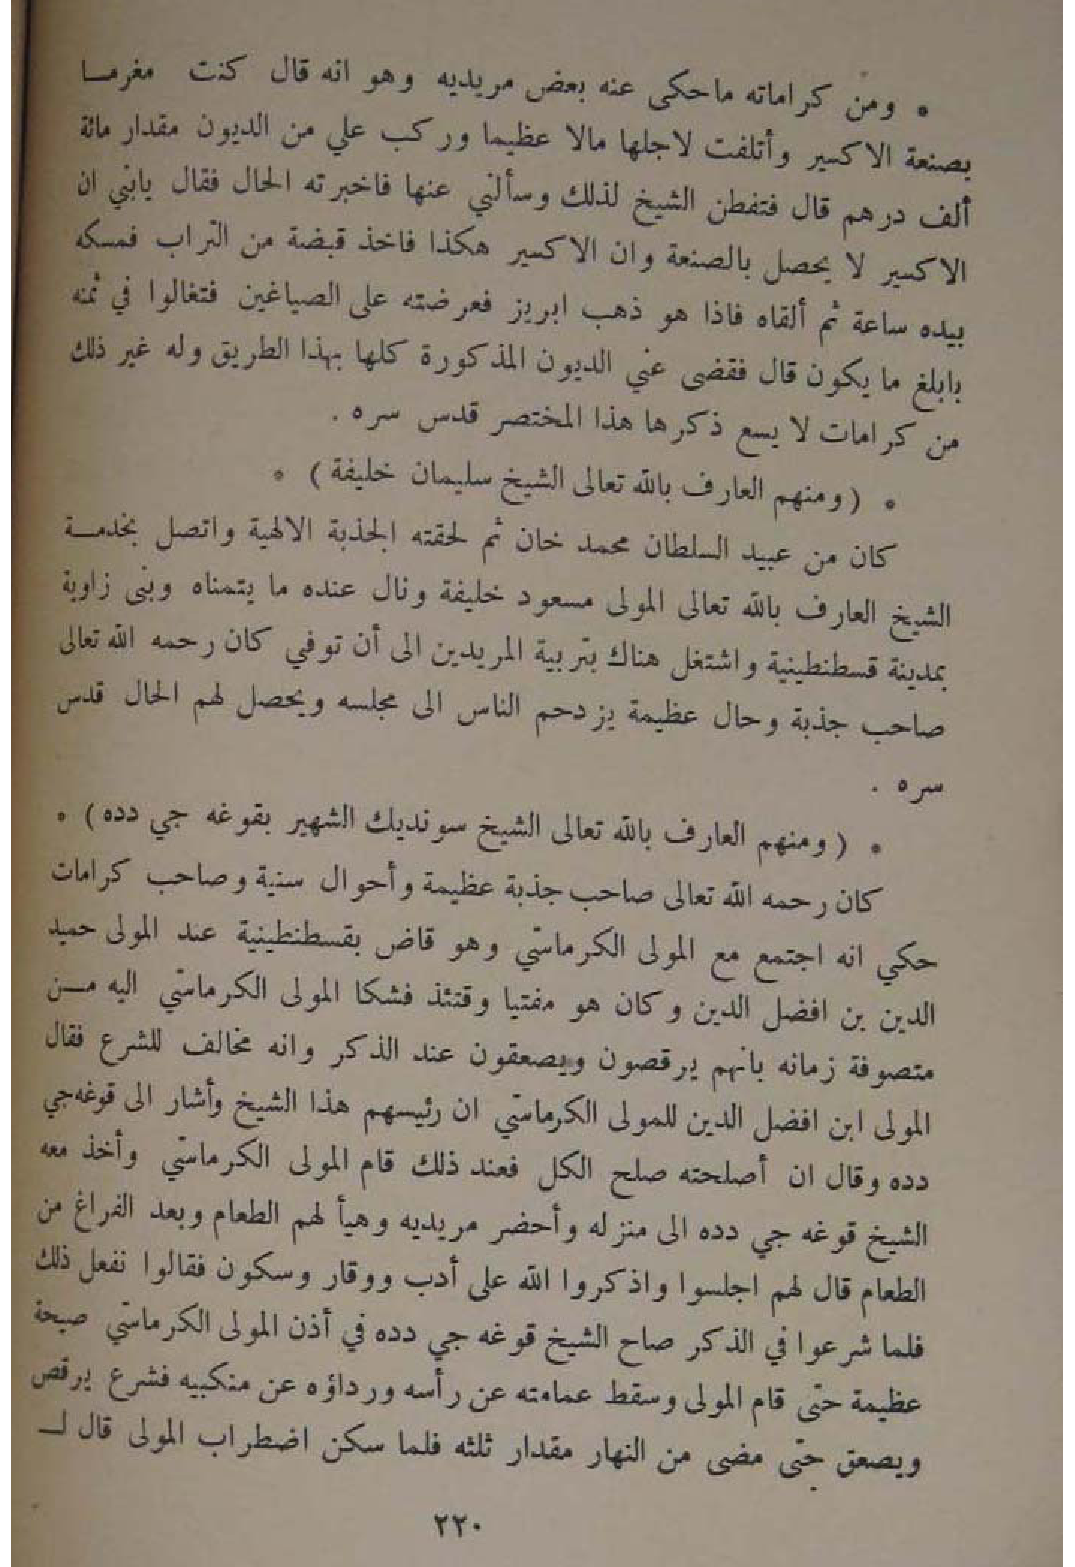 * ومن كراماته ماحكى عنه بعض مريديه وهو انه قال كنت مغرما
بصنعة الاكسير وأتلفت لاجلها مالا عظيما وركب علي من الديون مقدار مائة
ألف درهم قال فتفطن الشيخ لذلك وسألني عنها فاخبرته الحال فقال يابني ان
الاكسير لا يحصل بالصنعة وان الاكسير هكذا فاخذ قبضة من التراب فمسكه
بيده ساعة ثم ألقاه فاذا هو ذهب ابريز فعرضته على الصياغين فتغالوا في ثمنه
بابلغ ما يكون قال فقضى عني الديون المذكورة كلها بهذا الطريق وله غير ذلك
من كرامات لا يسع ذكرها هذا المختصر قدس سره .
* ( ومنهم العارف بالله تعالى الشيخ سليمان خليفة ) *
كان من عبيد السلطان محمد خان ثم لحقته الجذبة الالهية واتصل بخدمة
الشيخ العارف بالله تعالى المولى مسعود خليفة ونال عنده ما يتمناه وبنى زاوية
بمدينة قسطنطينية واشتغل هناك بتربية المريدين الى أن توفي كان رحمه الله تعالى
صاحب جذبة وحال عظيمة يزدحم الناس الى مجلسه ويحصل لهم الحال قدس
سره .
* ( ومنهم العارف بالله تعالى الشيخ سونديك الشهير بقوغه جي دده ) *
كان رحمه الله تعالى صاحب جذبة عظيمة وأحوال سنية وصاحب كرامات
حكي انه اجتمع مع المولى الكرماستي وهو قاض بقسطنطينية عند المولى حميد
الدين بن افضل الدين وكان هو مفتيا وقتئذ فشكا المولى الكرماستي اليه من
متصوفة زمانه بانهم يرقصون ويصعقون عند الذكر وانه مخالف للشرع فقال
المولى ابن افضل الدين للمولى الكرماستي ان رئيسهم هذا الشيخ وأشار الى قوغه جي
دده وقال ان أصلحته صلح الكل فعند ذلك قام المولى الكرماستي وأخذ معه
الشيخ قوغه جي دده الى منزله وأحضر مريديه وهيأ لهم الطعام وبعد الفراغ من
الطعام قال لهم اجلسوا واذكروا الله على أدب ووقار وسكون فقالوا نفعل ذلك
فلما شرعوا في الذكر صاح الشيخ قوغه جي دده في أذن المولى الكرماستي صيحة
عظيمة حتى قام المولى وسقط عمامته عن رأسه ورداؤه عن منكبيه فشرع يرقص
ويصعق حتى مضى من النهار مقدار ثلثه فلما سكن اضطراب المولى قال لـ
٢٢٠